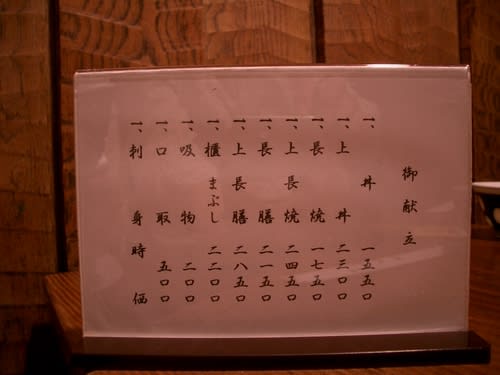 御献立
一、丼 一五五〇
一、上丼 二三〇〇
一、長焼 一七五〇
一、上長焼 二四五〇
一、長膳 二一五〇
一、上長膳 二八五〇
一、櫃まぶし 二二〇〇
一、吸物 二〇〇
一、口取 五〇〇
一、刺身 時価